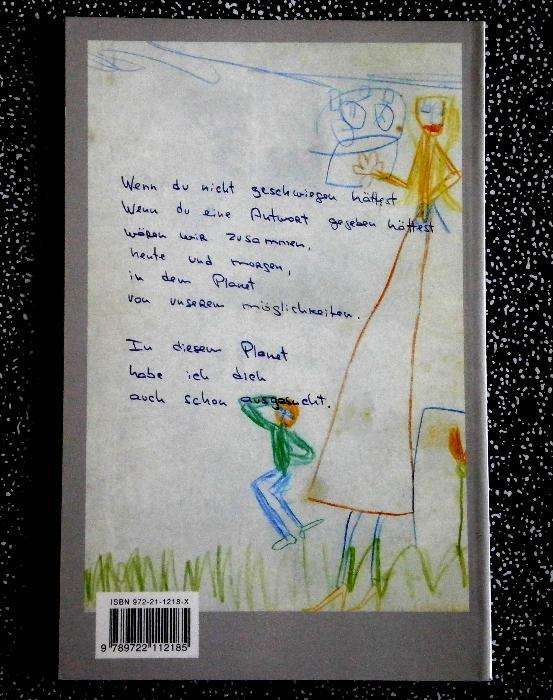 Wenn du nicht geschwiegen hättest
Wenn du eine Antwort gegeben hättest
wären wir zusammen,
heute und morgen,
in dem Planet
von unserem möglichkeiten.
In diesem Planet
habe ich dich
auch schon ausgesucht.
ISBN 972-21-1218-X
9 789722 112185